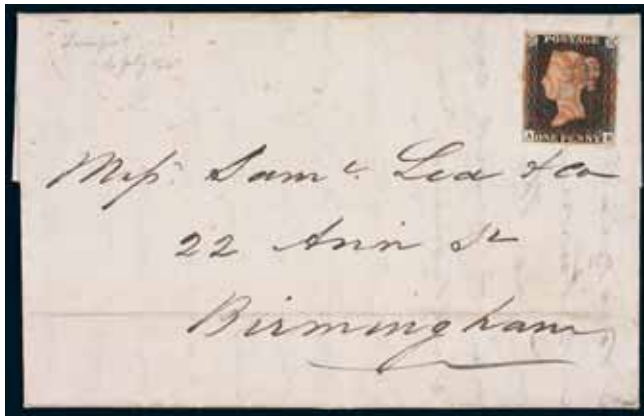 POSTAGE
A
ONE PENNY
Messrs. Saml. Lea & Co
22 Ann St
Birmingham